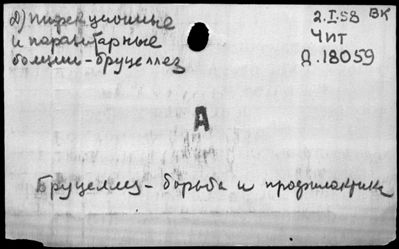 Д) Инфекционные
и паразитарные
болезни - бруцеллез
2.I.58 ВК
Чит
Д.18059
А
Бруцеллез - борьба и профилактика